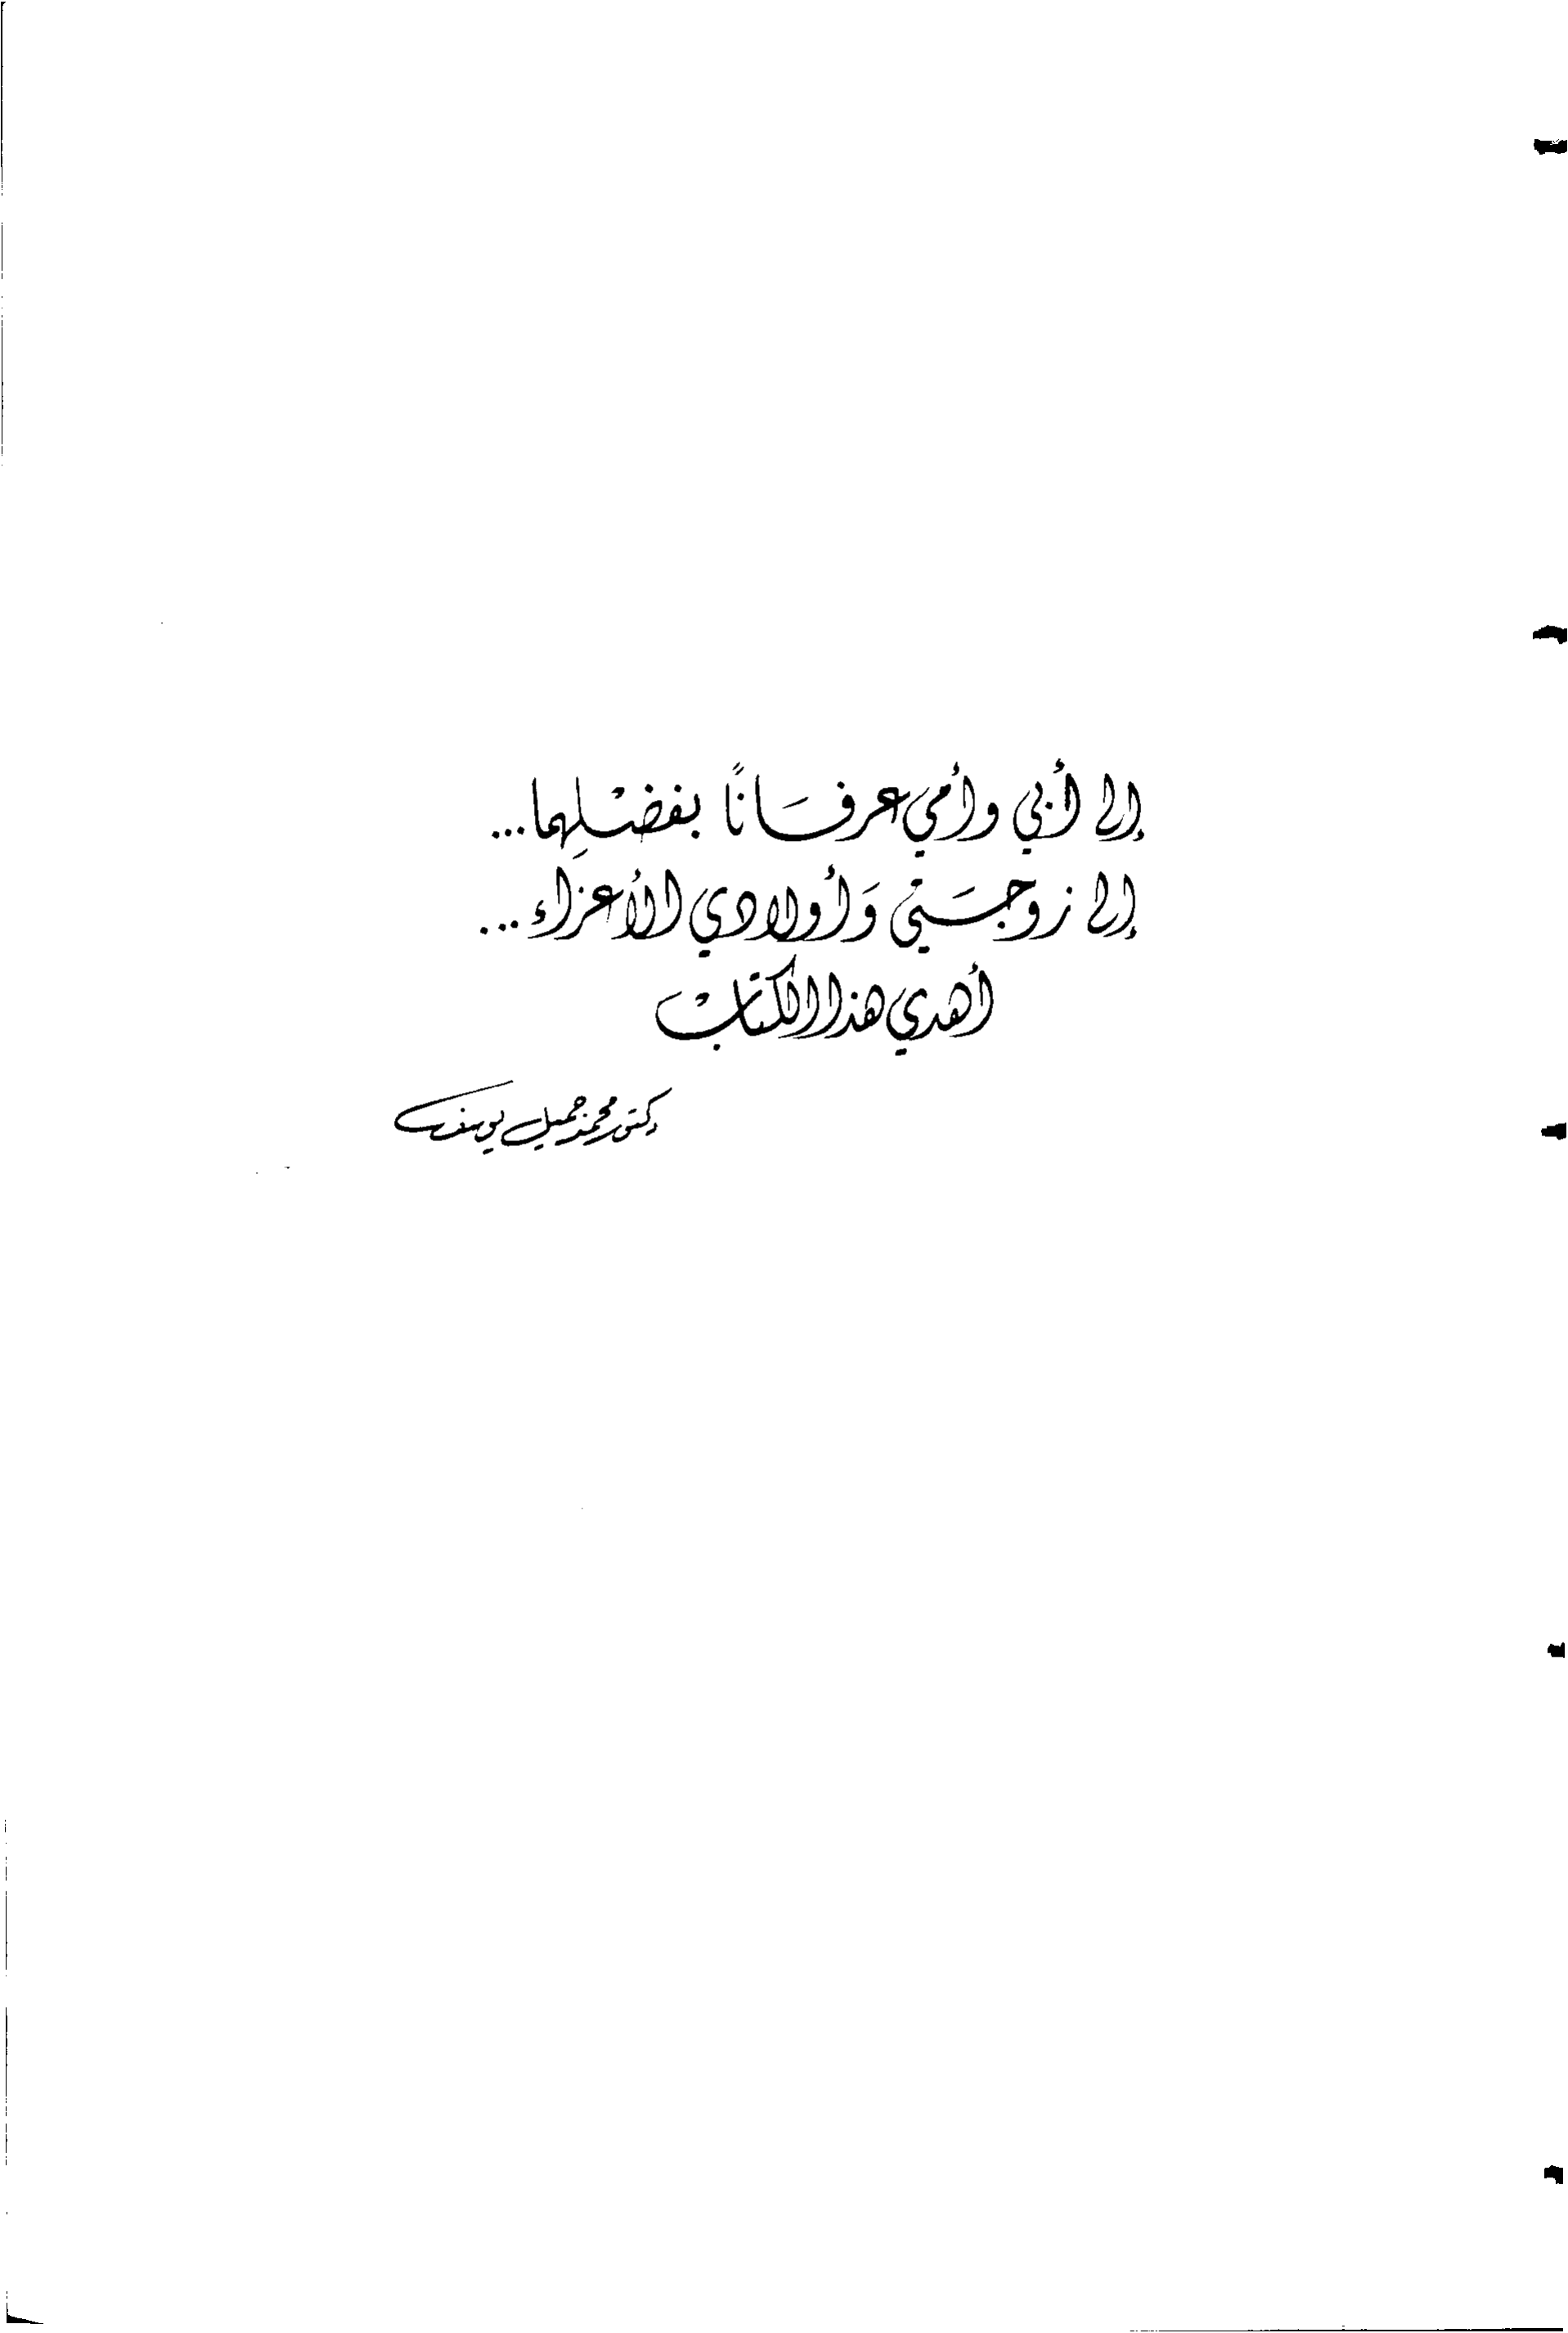 إلى أبي وأمي عرفَاناً بفضْلِهما...
إلى زوجَتي وَأولادي الأعزَاء...
أهدي هذا الكتابْ
دكتور محمد جميل يوسف